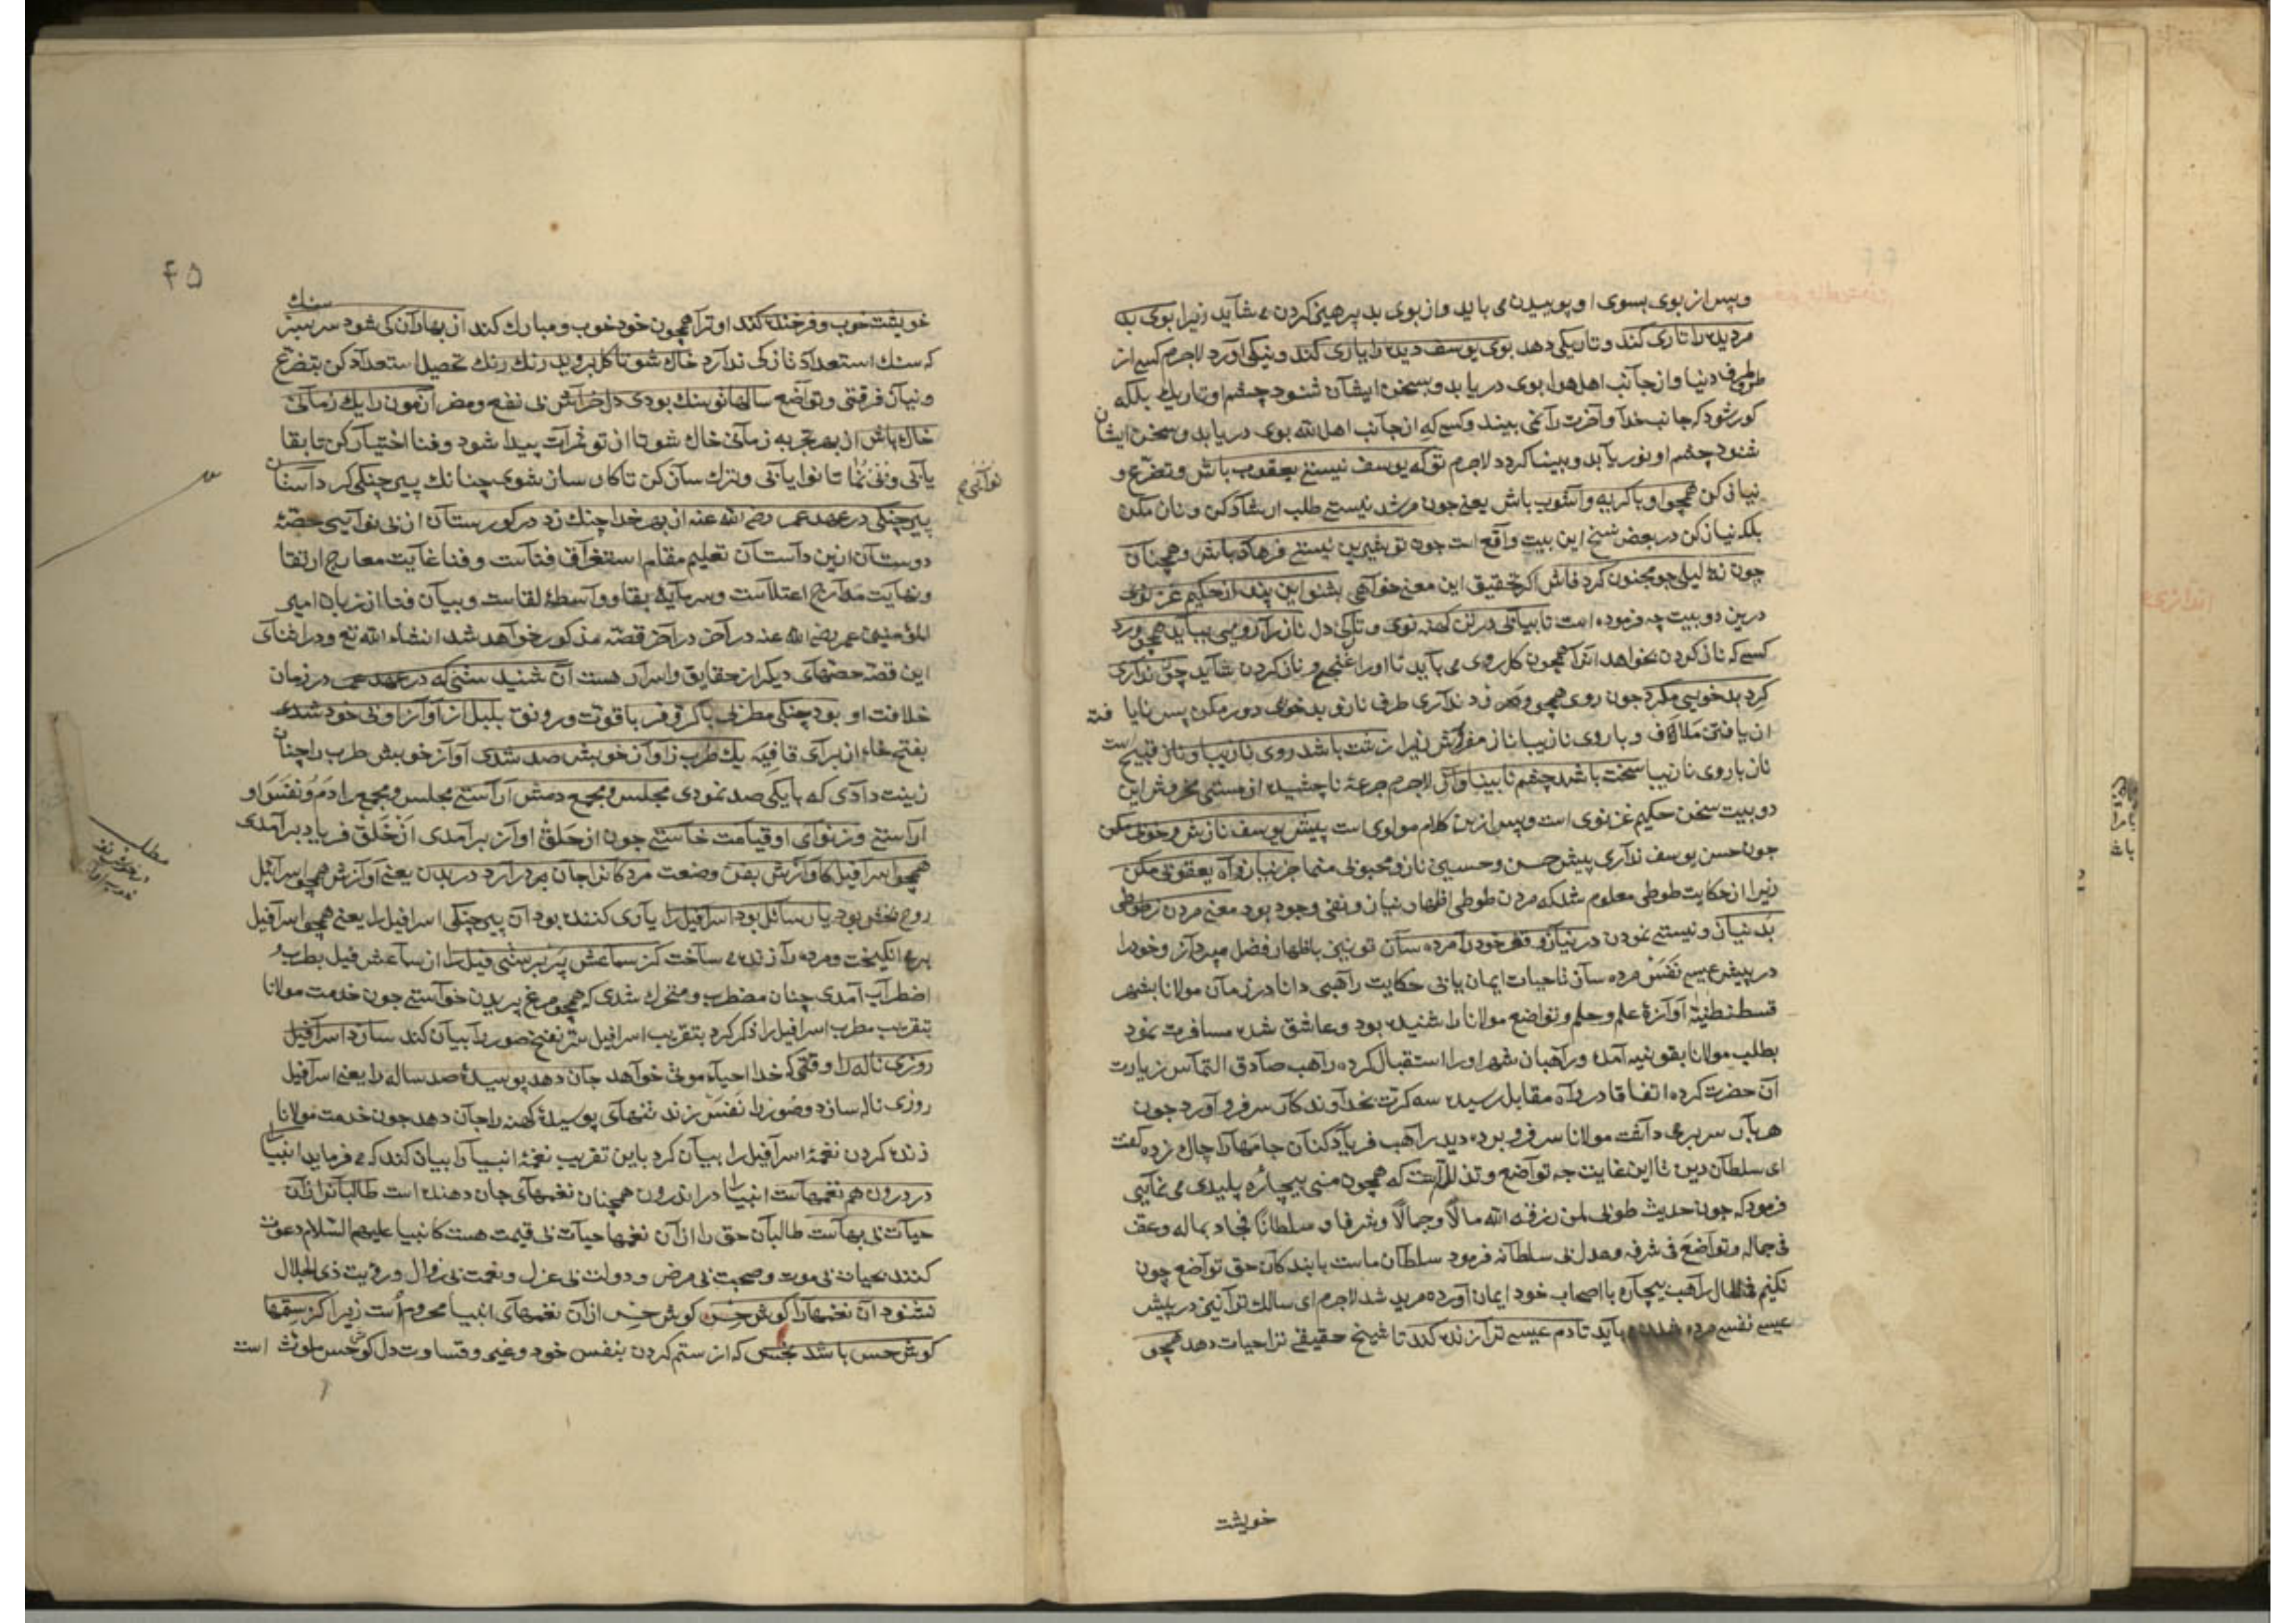 و پس از بوی بسوی او پوییدن می باید و از بوی بد پرهیز کردن می شاید زیرا بوی بد
مر دیده را تاری کند و تاریکی دهد بوی یوسف دیده را یاری کند و نیکی آورد لاجرم کسی از
طرف دنیا و از جانب اهل هوا بوی دریابد و بسخن ایشان شنود چشم او تاریک بلکه
کور شود که جانب خدا و آخرت را نمی بیند و کسی که از جانب اهل الله بوی دریابد و سخن ایشان
شنود چشم او نور یابد و بینا کردد لاجرم تو که یوسف نیستی یعقوب باش و تضرّع و
نیاز کن همچو او با کریه و آشوب باش یعنی چون مرشد نیستی طلب ارشاد کن و ناز مکن
بلکه نیاز کن در بعض نسخ این بیت واقع است چون تو شیرین نیستی فرهاد باش و همچنان
چون نۀ لیلی چو مجنون کرد فاش اکر تحقیق این معنی خواهی بشنو این پند از حکیم غزنوی
درین دو بیت چه فرموده است تا بیابی در تن کهنه نوی ناز را رویی بباید همچو ورد
کسی که ناز کردن بخواهد همچون کل روی می باید تا او را غنج و ناز کردن شاید چون نداری
کرد بد خویی مکرد چون روی همچو ورد نداری طرف ناز و بد خویی دور مکن پس نایافته
از یافتن ملاف و با روی نازیبا ناز مفروش زیرا زشت باشد روی نازیبا و ناز قبیح است
ناز با روی نازیبا سخت باشد چشم نابینا و لاجرم جرعۀ ناچشیده از مستی مخروش این
دو بیت سخن حکیم غزنوی است و پس ازین کلام مولوی است پیش یوسف نازش و خوبی مکن
چون حسن یوسف نداری پیش حسن و حسیبی ناز و محبوبی منما جز نیاز و آه یعقوبی مکن
زیرا از حکایت طوطی معلوم شد که مردن طوطی اظهار نیاز و نفی وجود بود معنی مردن ز طوطی
بد نیاز و نیستی نمودن در نیاز و فقر خود را مرده ساز تو نیز باظهار فضل مپرداز و خود را
در پیش عیسی نفس مرده ساز تا حیات ایمان یابی حکایت راهبی دانا در زمان مولانا بشهر
قسطنطنیه آوازۀ علم و حلم و تواضع مولانا را شنیده بود و عاشق شده مسافرت نمود
بطلب مولانا بقونیه آمده و راهبان شهر او را استقبال کرده راهب صادق التماس زیارت
آن حضرت کرده اتفاقا در راه مقابل رسیده سه کرّت بخداوندکار سر فرو آورد چون
هر بار سر بر می داشت مولانا سر فرو برده دید راهب فریاد کنان جامهارا چاک زده کفت
ای سلطان دین تا این غایت چه تواضع و تذلل است که همچون منی بیچاره پلیدی می نمایی
فرمود که چون حدیث طوبی لمن رزقه الله مالا وجمالا وشرفا وسلطانا فجاد بماله وعف
فی جماله وتواضع فی شرفه وعدل فی سلطانه فرمود سلطان ماست با بندکان حق تواضع چون
نکنیم فی الحال راهب بیچاره با اصحاب خود ایمان آورده مرید شد لاجرم ای سالک ترا نیز در پیش
عیسی نفسی مرده باید تا دم عیسی ترا زنده کند تا شیخ حقیقی ترا حیات دهد همچو
خویشت
۴۵
خویشت خوب و فرخنده کند او ترا همچون خود خوب و مبارک کند از بهاران کی شود سر سبز سنک
که سنک استعداد نازکی ندارد خاک شو تا کل بروید رنک رنک تحصیل استعداد کن بتضرّع
و نیاز فرقتی و تواضع سالها تو سنک بودی دلخراش بی نفع و مضر آزمون را یک زمانی
خاک باش از بهر تجربه زمانی خاک شو تا از تو ثمرات پیدا شود و فنا اختیار کن تا بقا
یابی و بی نما تا نوا یابی و ترک ساز کن تا کار ساز شوی چنانک پیر چنکی کرد داستان
پیر چنکی در عهد عمر رضی الله عنه از بهر خدا چنک زد در کورستان از بی نوایی حصۀ
دوستان ازین داستان تعلیم مقام استغراق فناست و فنا غایت معارج ارتقا
و نهایت مدارج اعتلاست و سرمایۀ بقا و واسطۀ لقاست و بیان فنا از زبان امیر
المؤمنین عمر رضی الله عنه در آخر قصّه مذکور خواهد شد انشاء الله تع و در اثنای
این قصّه حصّهای دیکر از حقایق و اسرار هست آن شنیدستی که در عهد عمر در زمان
خلافت او بود چنکی مطربی با کرّ و فر با قوّت و رونق بلبل از آواز او بی خود شدی
بفتح خاء از برای قافیه یک طرب ز آواز خوبش صد شدی آواز خوبش طرب را چنان
زینت دادی که با یکی صد نمودی مجلس و مجمع دمش آراستی مجلس و مجمع را دم و نفس او
آراستی وز نوای او قیامت خاستی چون از حلق او آواز بر آمدی از خلق فریاد بر آمدی
همچو اسرافیل کاوازش بفن وضعت مردکانرا جان در آرد در بدن یعنی آوازش همچو اسرافیل
روح بخش بود یا رسائل بود اسرافیل را یاری کننده بود آن پیر چنکی اسرافیل را یعنی همچو اسرافیل
بر می انکیخت و مرده را زنده می ساخت کز سماعش پر برستی فیل را از سماعش فیل بطرب و
اضطراب آمدی چنان مضطرب و متحرک شدی که همچو مرغ پریدن خواستی چون خدمت مولانا
بتقریب مطرب اسرافیل را ذکر کرد بتقریب اسرافیل سرّ نفخ صور را بیان کند سازد اسرافیل
روزی ناله را وقتی که خدا احیاء موتی خواهد جان دهد پوسیدۀ صد ساله را یعنی اسرافیل
روزی ناله سازد و صور را نفس زند تنهای پوسیدۀ کهنه را جان دهد چون خدمت مولانا
زنده کردن نغمۀ اسرافیل را بیان کرد باین تقریب نغمۀ انبیا را بیان کند که می فرماید انبیا
در درون هم نغمهاست انبیا را در اندرون همچنان نغمهای جان دهنده است طالبانرا زان
حیات بی بهاست طالبان حق را از آن نغمها حیات بی قیمت هست کانبیا علیهم السّلام دعوت
کنند بحیات بی موت و صحبت بی مرض و دولت بی عزل و نعمت بی زوال و رؤیت ذی الجلال
نشنود آن نغمهارا کوش حس کوش حس از آن نغمهای انبیا محروم است زیرا کز ستمها
کوش حس باشد نجس که از ستم کردن بنفس خود و غیر و قساوت دل کوش حس ملوث است
مطلب